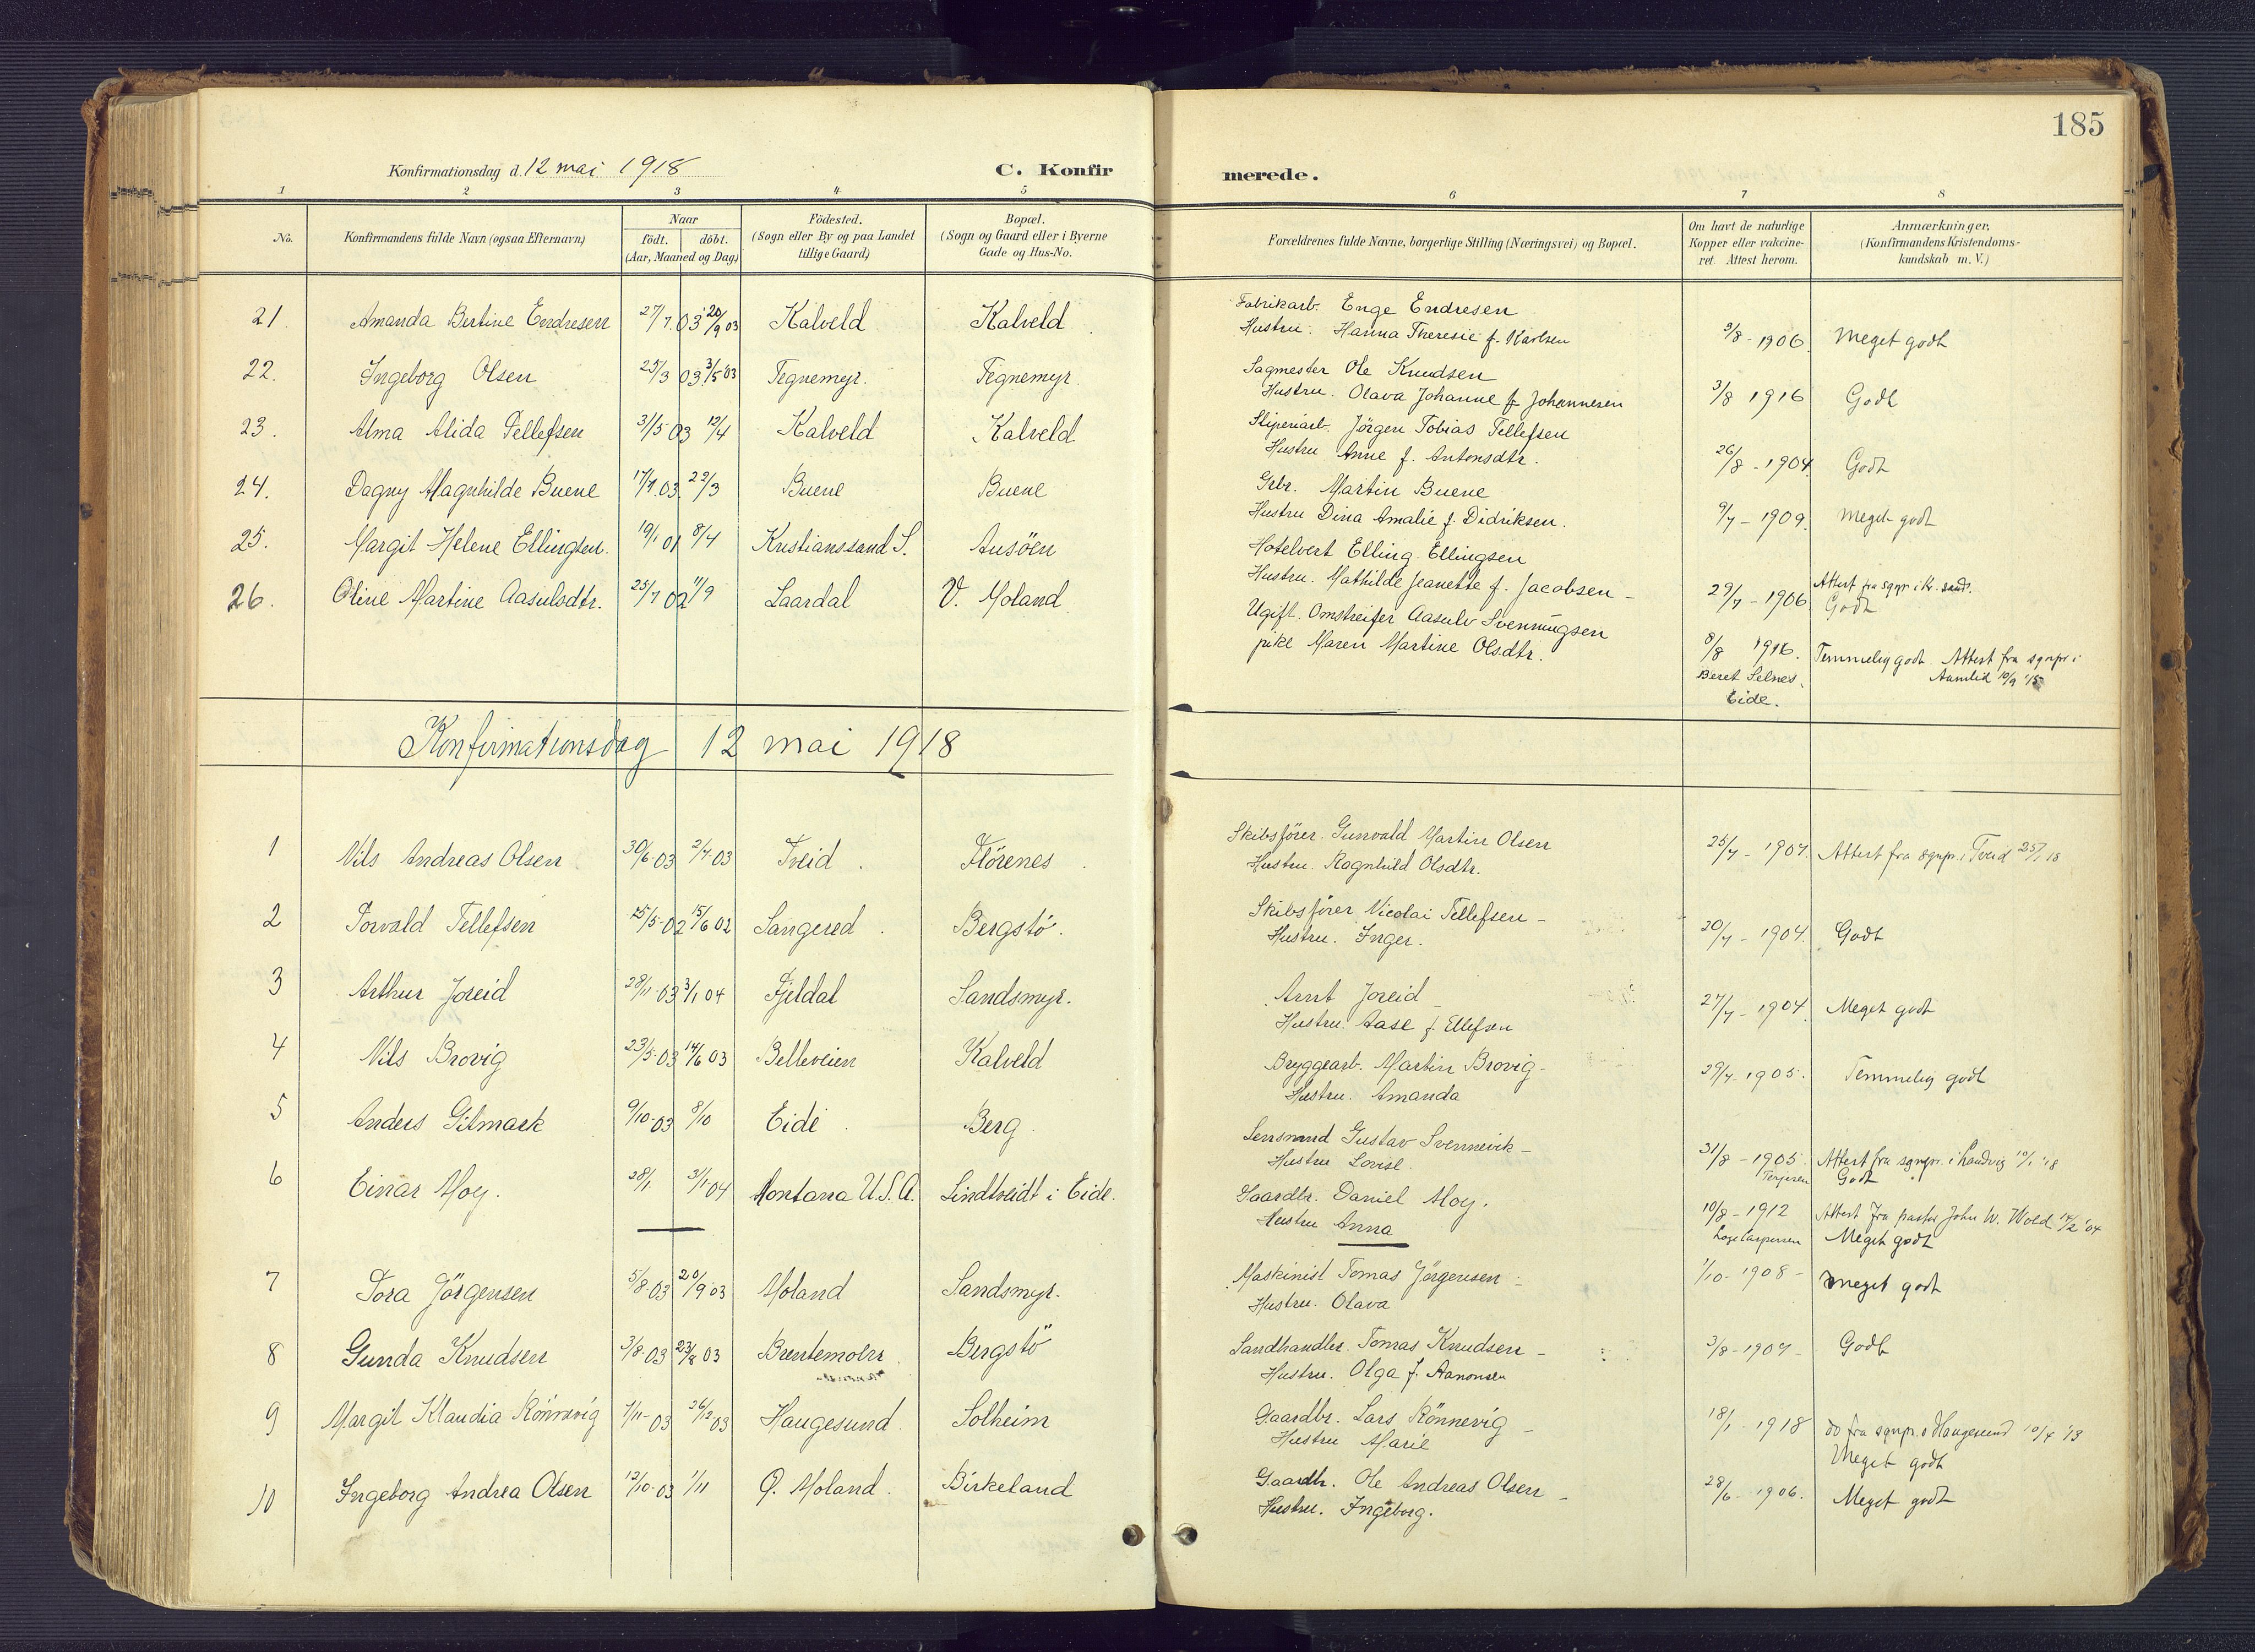 185
Konfirmationsdag d. 12 mai 1918
C. Konfir
merede.
1 2 3 4 5 6 7 8
No.
Konfirmandens fulde Navn (ogsaa Efternavn)
Naar
födt. döbt.
(Aar, Maaned og Dag)
Födested.
(Sogn eller By og paa Landet
tillige Gaard)
Bopæl.
(Sogn og Gaard eller i Byerne
Gade og Hus-No.
Forældrenes fulde Navne, borgerlige Stilling (Næringsvei) og Bopæl.
Om havt de naturlige
Kopper eller vakcine-
ret. Attest herom.
Anmærkninger.
(Konfirmandens Kristendoms-
kundskab m. V.)
21. Amanda Bertine Endresen 27/7 03 20/9 03 Kalveld Kalveld
Fabrikarb. Enge Endresen
Hustru. Hanna Theresie f. Karlsen 9/8 - 1906 Meget godt
22. Ingeborg Olsen 25/3 03 3/5 03 Tegnemyr. Tegnemyr.
Sagmester Ole Knudsen
Hustru. Olava Johanne f. Johannesen 3/8 1916 Godt
23. Alma Alida Tellefsen 31/5 03 12/4 Kalveld Kalveld
Sliperiarb. Jörgen Tobias Tellefsen
Hustru Anne f. Antonsdtr. 26/8 - 1904 Godt
24. Dagny Magnhilde Buene 17/1 03. 22/3 Buene Buene
Grbr. Martin Buene
Hustru Dina Amalie f. Didriksen. 9/7 - 1909. Meget godt
25. Margit Helene Ellingsen. 19/1 01 8/4 Kristianssand S. Ausöen
Hotelvert Elling Ellingsen
Hustru. Mathilde Jeanette f. Jacobsen - 29/7 - 1906 Attest fra sgnpr i Kr. sand.
Godt
26. Oline Martine Aasulsdtr. 25/7 02 11/9 Laardal V. Moland
Ugift. Omstreifer Aasulv Svenningsen
pike Maren Martine Olsdtr. 8/8 1916. Temmelig godt. Attest fra sgnpr i
Beret Selnes, Aamlid 10/9 '15
Eide.
Konfirmationsdag 12 mai 1918
1 Nils Andreas Olsen 30/6-03 2/7-03 Tveid. Flörenes
Skibsförer. Gunvald Martin Olsen
Hustru. Ragnhild Olsdtr. 25/7 - 1904. Attest fra sgnpr. i Tveid 25/1 18
2 Torvald Tellefsen 25/5-02 15/6 02 Sangered. Bergstö.
Skibsförer Nicolai Tellefsen -
Hustru. Inger. 20/7 - 1904. Godt
3 Arthur Joreid 28/11-03 3/1 04 Fjeldal Sandsmyr.
Arnt Joreid
Hustru. Aase f. Ellefsen 27/7 - 1904. Meget godt
4 Nils Brovig 23/5-03 14/6 03 Belleveien Kalveld
Bryggearb. Martin Brovig -
Hustru. Amanda 29/7-1905. Temmelig godt
5 Anders Gitmark 9/10-03 8/10 Eide Berg
Lensmand Gustav Svennevik -
Hustru Lovise. 31/8 - 1905. Attest fra sgnpr. i Landvig 10/1 '18
Terjesen Godt
6 Einar Moy. 28/1 3/1 04 Montana U.S.A. Lindtveidt i Eide.
Gaardbr. Daniel Moy.
Hustru Anna 10/8 - 1912 Attest fra pastor John W. Wold 14/2 '04
Meget godt
7 Tora Jörgensen 5/8-03 20/9 03 Moland Sandsmyr.
Maskinist Tomas Jörgensen -
Hustru. Olava 1/10-1908 - Meget godt
8 Gunda Knudsen 3/8-03 23/8 03 Brentemoen Bergstö
Sandhandler. Tomas Knudsen -
Hustru. Olga f. Aanonsen 3/8-1907 - Godt
9 Margit Klaudia Rönnevig 7/11-03 26/12 03 Haugesund. Solheim
Gaardbr. Lars Rönnevig -
Hustru Marie 18/1 - 1918 do fra sgnpr. i Haugesund 10/4 '13
Meget godt
10 Ingeborg Andrea Olsen 12/10-03 1/11 Ö. Moland. Birkeland
Gaardbr. Ole Andreas Olsen -
Hustru. Ingeborg. 28/6 - 1906. Meget godt